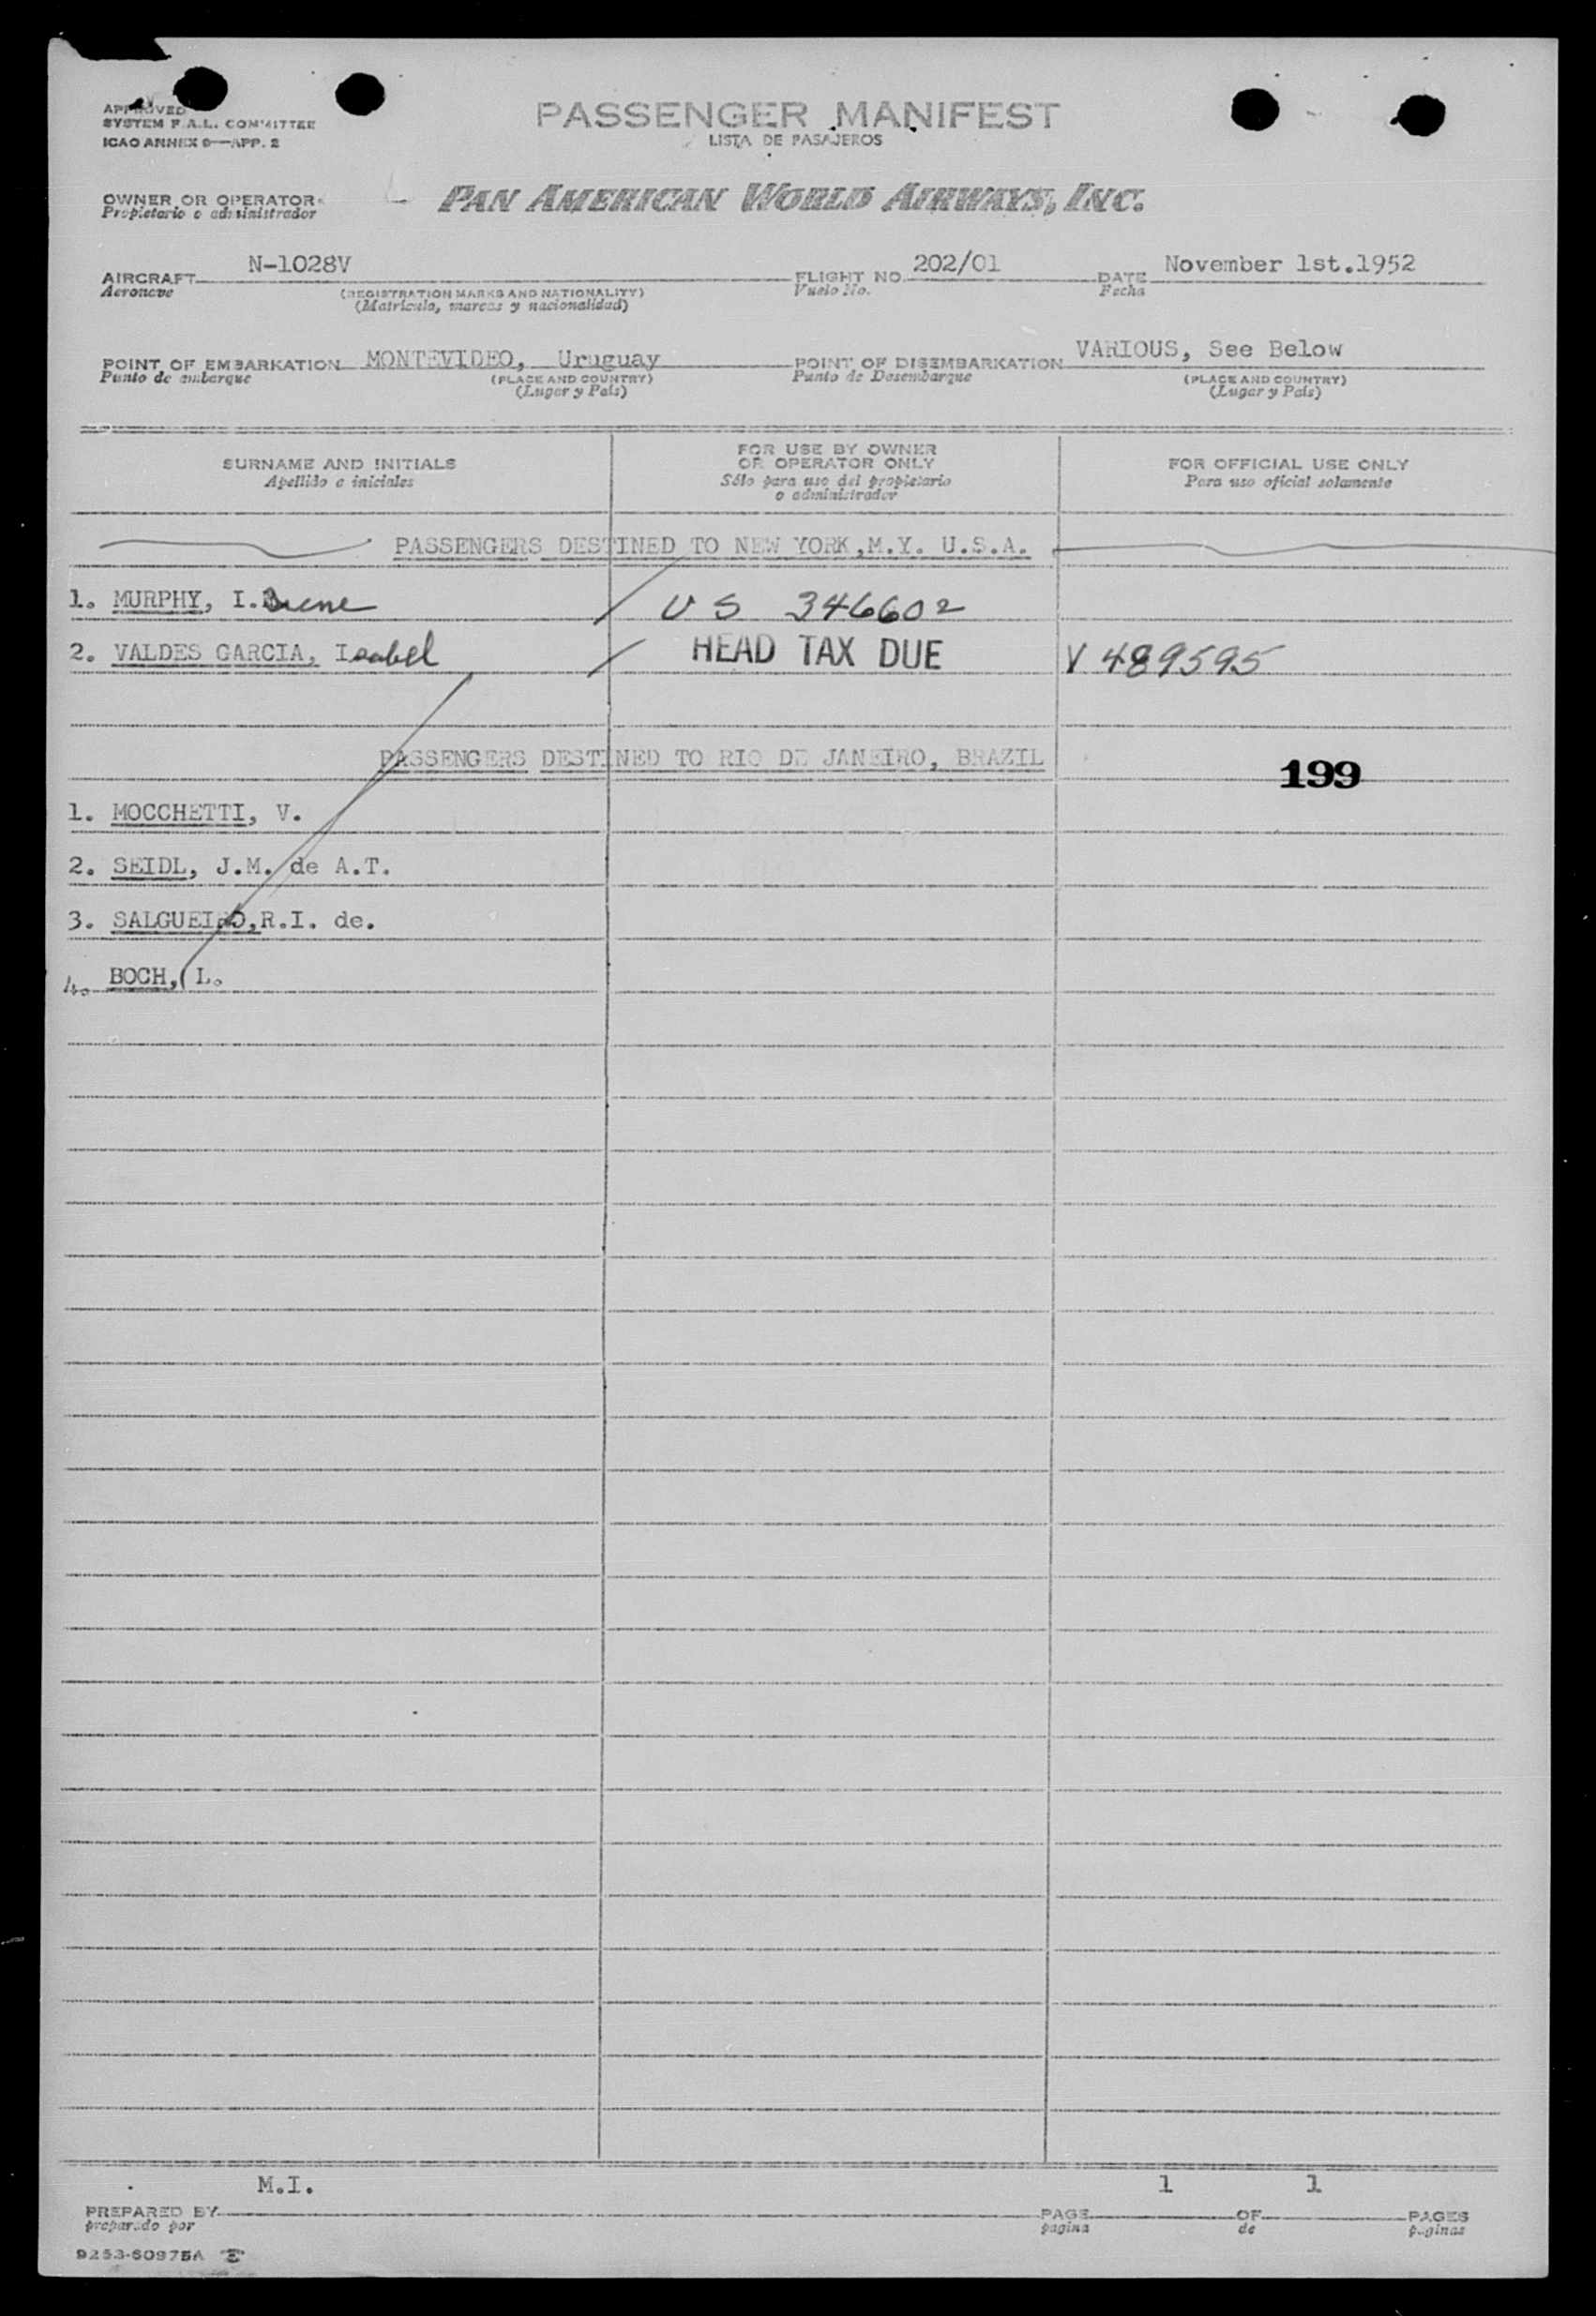 APPROVED
SYSTEM F.A.L. COMMITTEE
ICAO ANNEX 9—APP. 2
PASSENGER MANIFEST
LISTA DE PASAJEROS
OWNER OR OPERATOR
Propietario o administrador
PAN AMERICAN WORLD AIRWAYS, INC.
AIRCRAFT N-1028V FLIGHT NO. 202/01 DATE November 1st.1952
Aeronave (REGISTRATION MARKS AND NATIONALITY) Vuelo No. Fecha
(Matrícula, marcas y nacionalidad)
POINT OF EMBARKATION MONTEVIDEO, Uruguay POINT OF DISEMBARKATION VARIOUS, See Below
Punto de embarque (PLACE AND COUNTRY) Punto de Desembarque (PLACE AND COUNTRY)
(Lugar y País) (Lugar y País)
SURNAME AND INITIALS FOR USE BY OWNER OR OPERATOR ONLY FOR OFFICIAL USE ONLY
Apellido e iniciales Sólo para uso del propietario o administrador Para uso oficial solamente
PASSENGERS DESTINED TO NEW YORK,N.Y. U.S.A.
1. MURPHY, I. Irene US 346602
2. VALDES GARCIA, Isabel HEAD TAX DUE V 489595
PASSENGERS DESTINED TO RIO DE JANEIRO, BRAZIL
199
1. MOCCHETTI, V.
2. SEIDL, J.M. de A.T.
3. SALGUEIRO,R.I. de.
4. BOCH, L.
M.I. 1 1
PREPARED BY PAGE OF PAGES
preparado por página de páginas
9253-50975A E